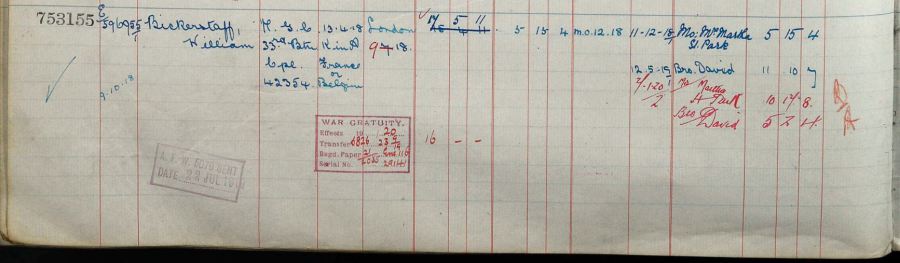 753155 E/596955/1 Bickerstaff, M. G. C. 13.4.18 London 17 5 11 5 15 4 m.o. 12.18 11-12-18 Mo: Mrs Martha 5 15 4
William 33rd Btn K. in A. 9 18. St. Park
Cpl. France
or
42354 Belgium 12.5.19 Bro. David 11 10 7
9.10.18
Mo Martha
Park 10 17 8.
Bro
David 5 2 4.
WAR GRATUITY.
Effects 19 20
Transfer 6826
Regd. Paper
Serial No.
16 - -
A. F. W. 5070 SENT
DATE 22 JUL 19